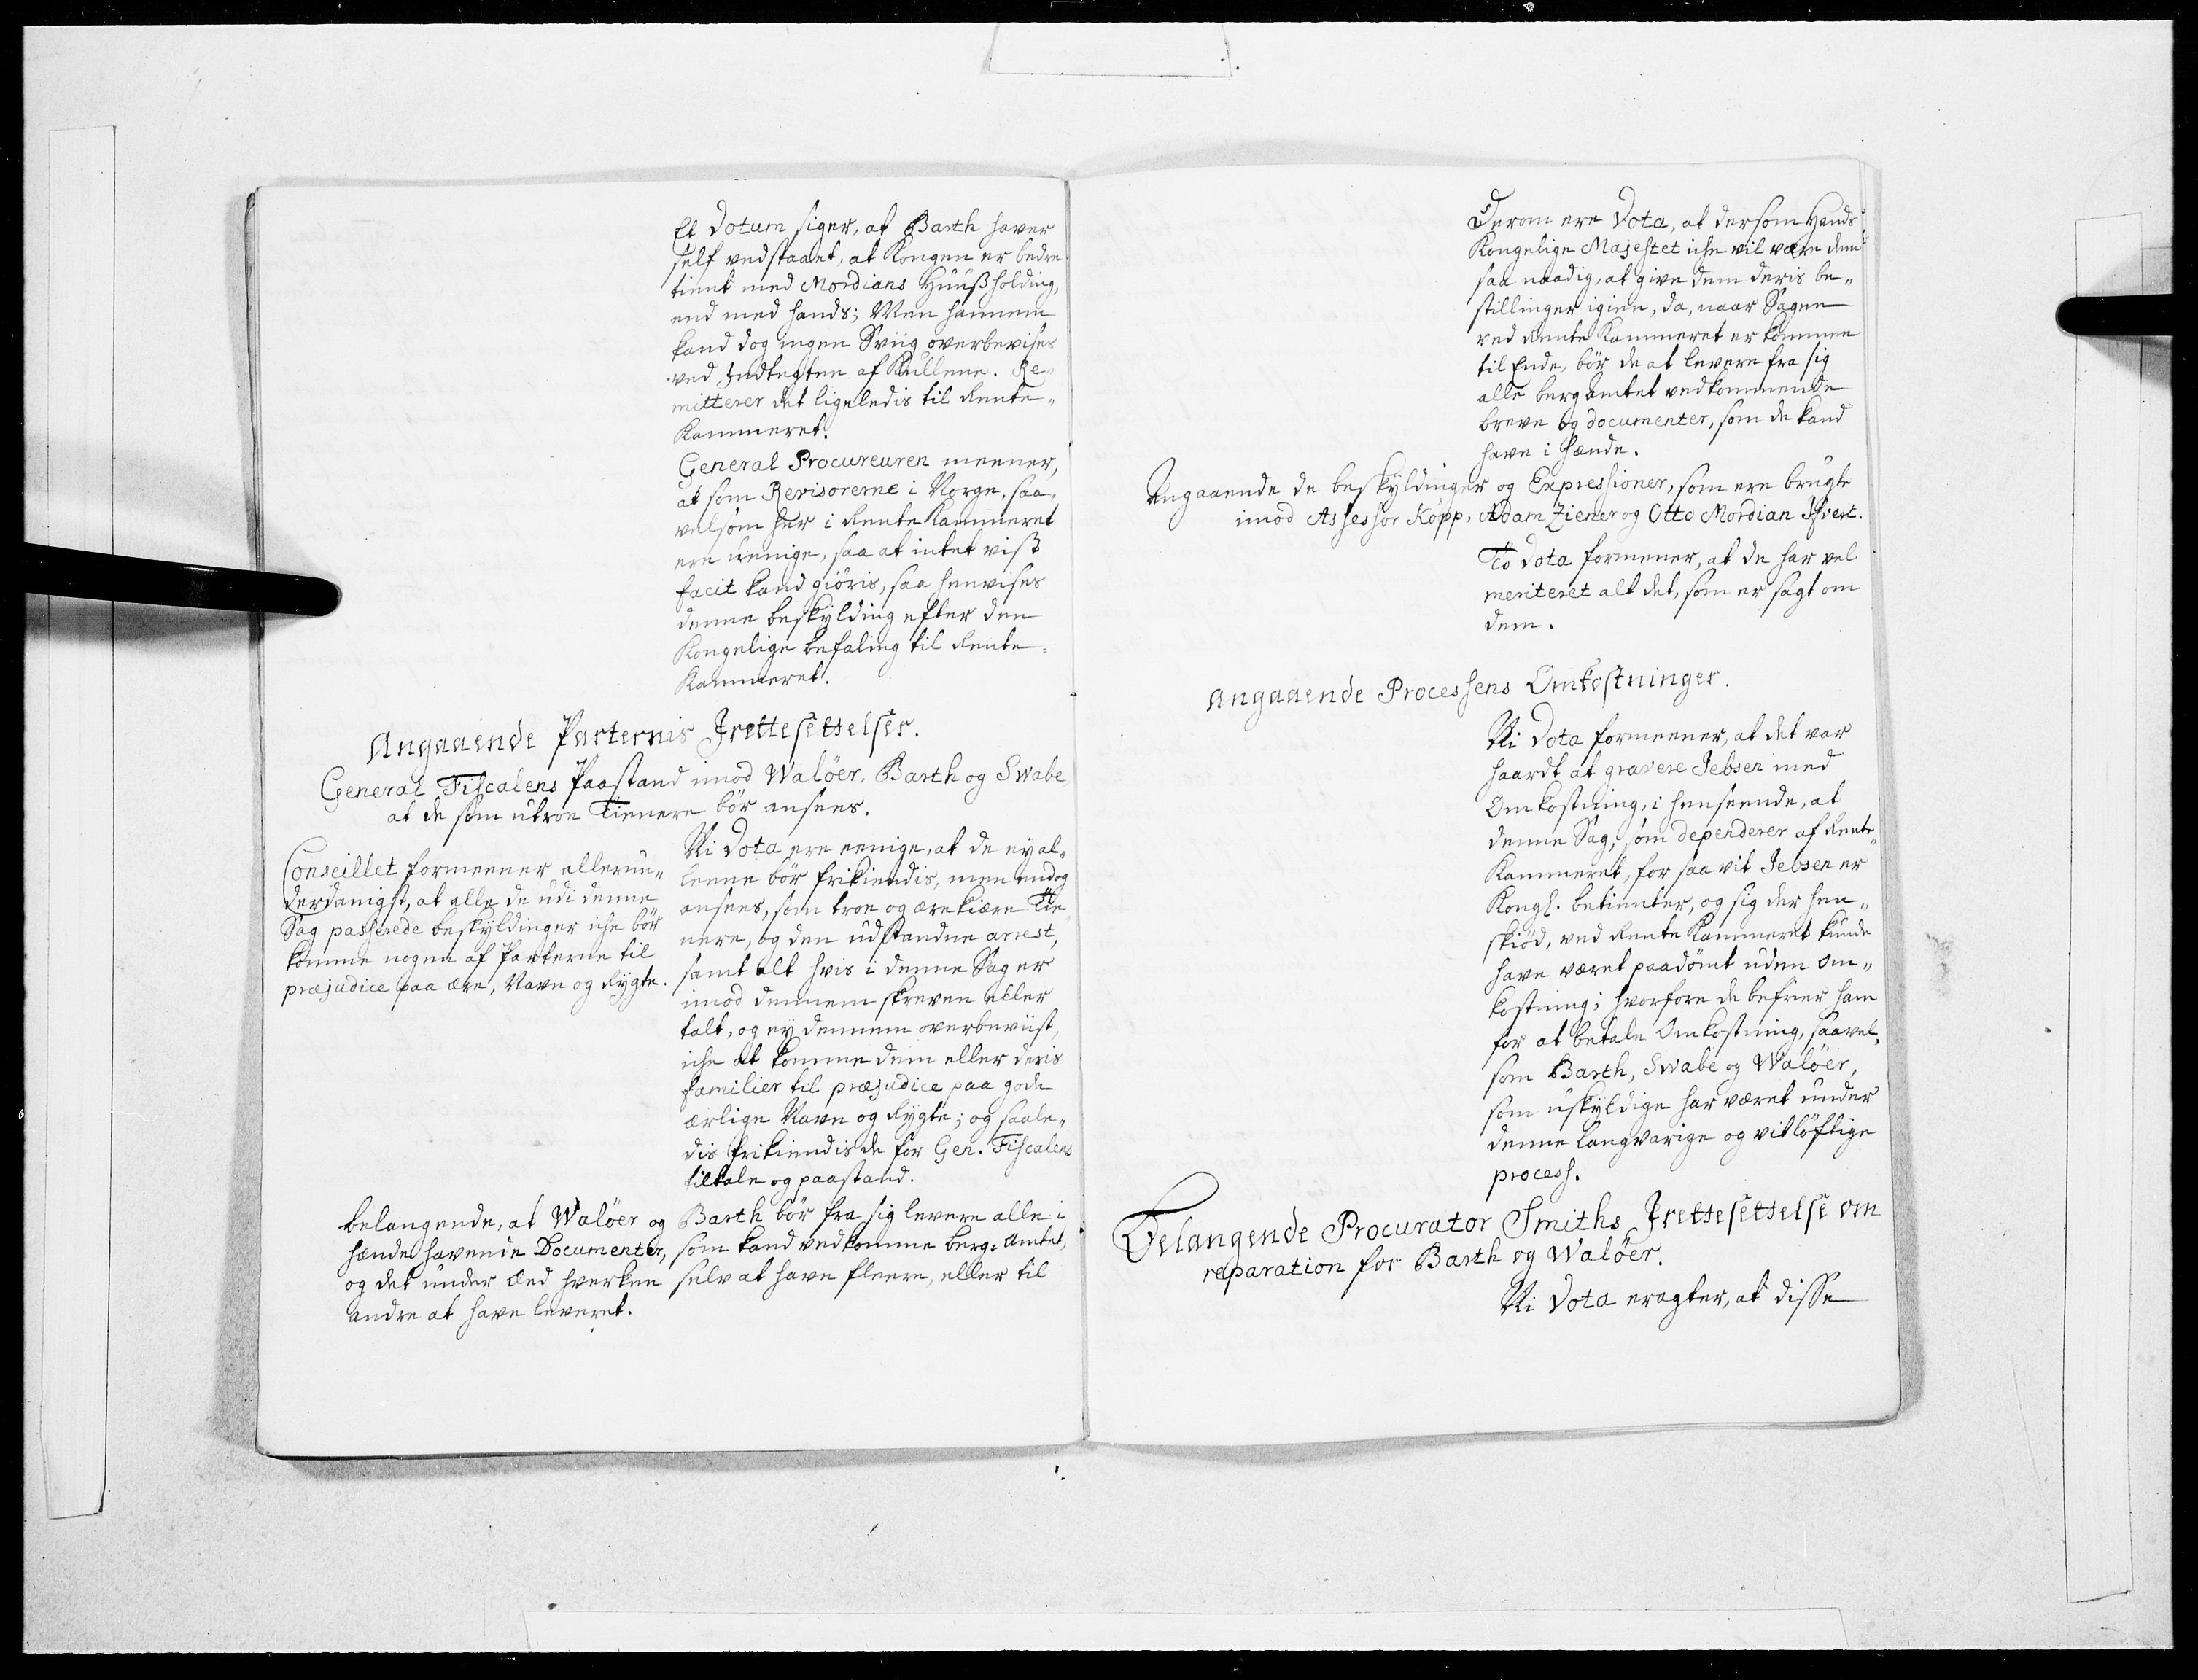 Et Votum siger, at Barth haver
self vedstaaet, at Kongen er bedre
tient med Mordians Huusholding,
end med hands; Men hannem
kand dog ingen Sviig overbevises
ved Indtegten af Kullene. Re-
mitterer det ligeledis til Rente-
Kammeret.
General Procureuren meener,
at som Revisorerne i Norge, saa-
velsom her i Rente Kammeret
ere uenige, saa at intet vist
facit kand giöris, saa henvises
denne beskylding efter den
Kongelige befaling til Rente-
Kammeret.
Angaaende Parternis Irettesettelser.
General Fiscalens Paastand imod Walöer, Barth og Swabe
at de som utroe Tienere bör ansees.
Conseillet formeener allerun-
derdanigst, at alle de udi denne
Sag passerede beskyldinger iche bör
komme nogen af Parterne til
præjudice paa ære, Navn og Rygte.
Ni Vota ere eenige, at de ey al-
leene bör frikiendis, men endog
ansees, som troe og ærekiære Tie-
nere, og den udstandne arrest,
samt alt hvis i denne Sag er
imod dennem skreven eller
talt, og ey dennem overbeviist,
iche at komme dem eller deris
familier til præjudice paa gode
ærlige Navn og Rygte; og saale-
dis frikiendis de for Gen. Fiscalens
tiltale og paastand.
belangende, at Walöer og Barth bör fra sig levere alle i
hænde havende Documenter, som kand vedkomme berg-Amtet,
og det under Æd hverken selv at have fleere, eller til
andre at have leveret.
Derom ere Vota, at dersom Hands
Kongelige Majestet iche vil være dem
saa naadig, at give dem deris be-
stillinger igien, da, naar Sagen
ved Rente Kammeret er kommen
til Ende, bör de at levere fra sig
alle berg Amtet vedkommende
breve og documenter, som de kand
have i hænde.
Angaaende de beskyldinger og Expressioner, som ere brugte
imod Assessor Köpp, Adam Ziener og Otto Mordian Ifvert.
To Vota formener, at de har vel
meriteret alt det, som er sagt om
dem.
Angaaende Processens Omkostninger.
Ni Vota formeener, at det var
haardt at gravere Jebsen med
Omkostning, i henseende, at
denne Sag, som dependerer af Rente-
Kammeret, for saa vit Jebsen er
Kongl. betienter, og sig der hen-
skiöd, ved Rente Kammeret kunde
have været paadömt uden Om-
kostning; hvorfore de befrier ham
for at betale Omkostning, saavel-
som Barth, Swabe og Walöer,
som uskyldige har været under
denne langvarige og vitlöftige
process.
Belangende Procurator Smiths Irettesettelse om
reparation for Barth og Walöer.
Ni Vota eragter, at disse